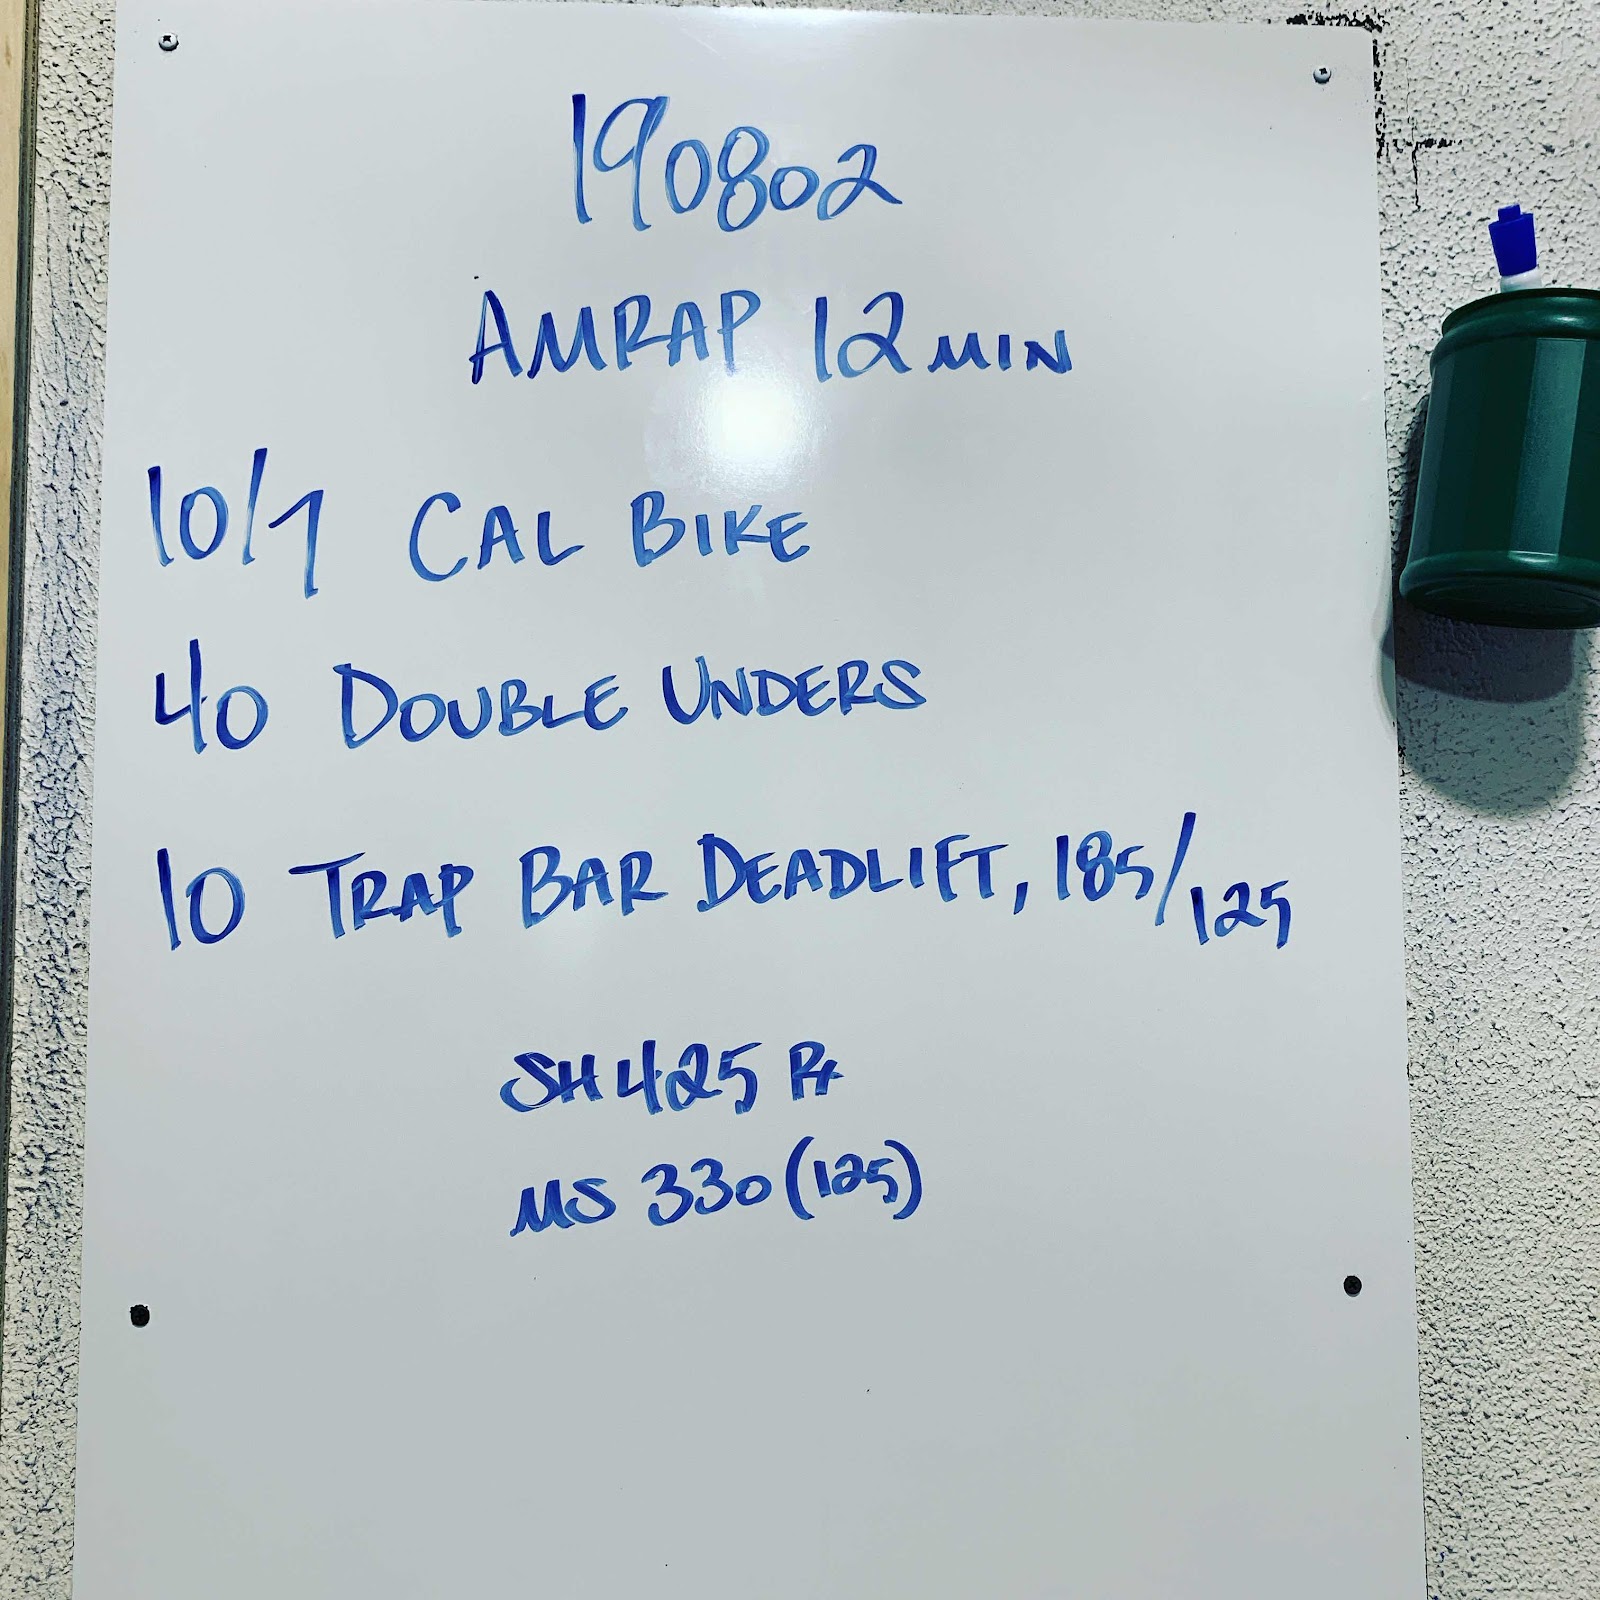 190802
AMRAP 12 MIN
10/7 CAL BIKE
40 DOUBLE UNDERS
10 TRAP BAR DEADLIFT, 185/125
SH 425 Rx
MS 330 (125)